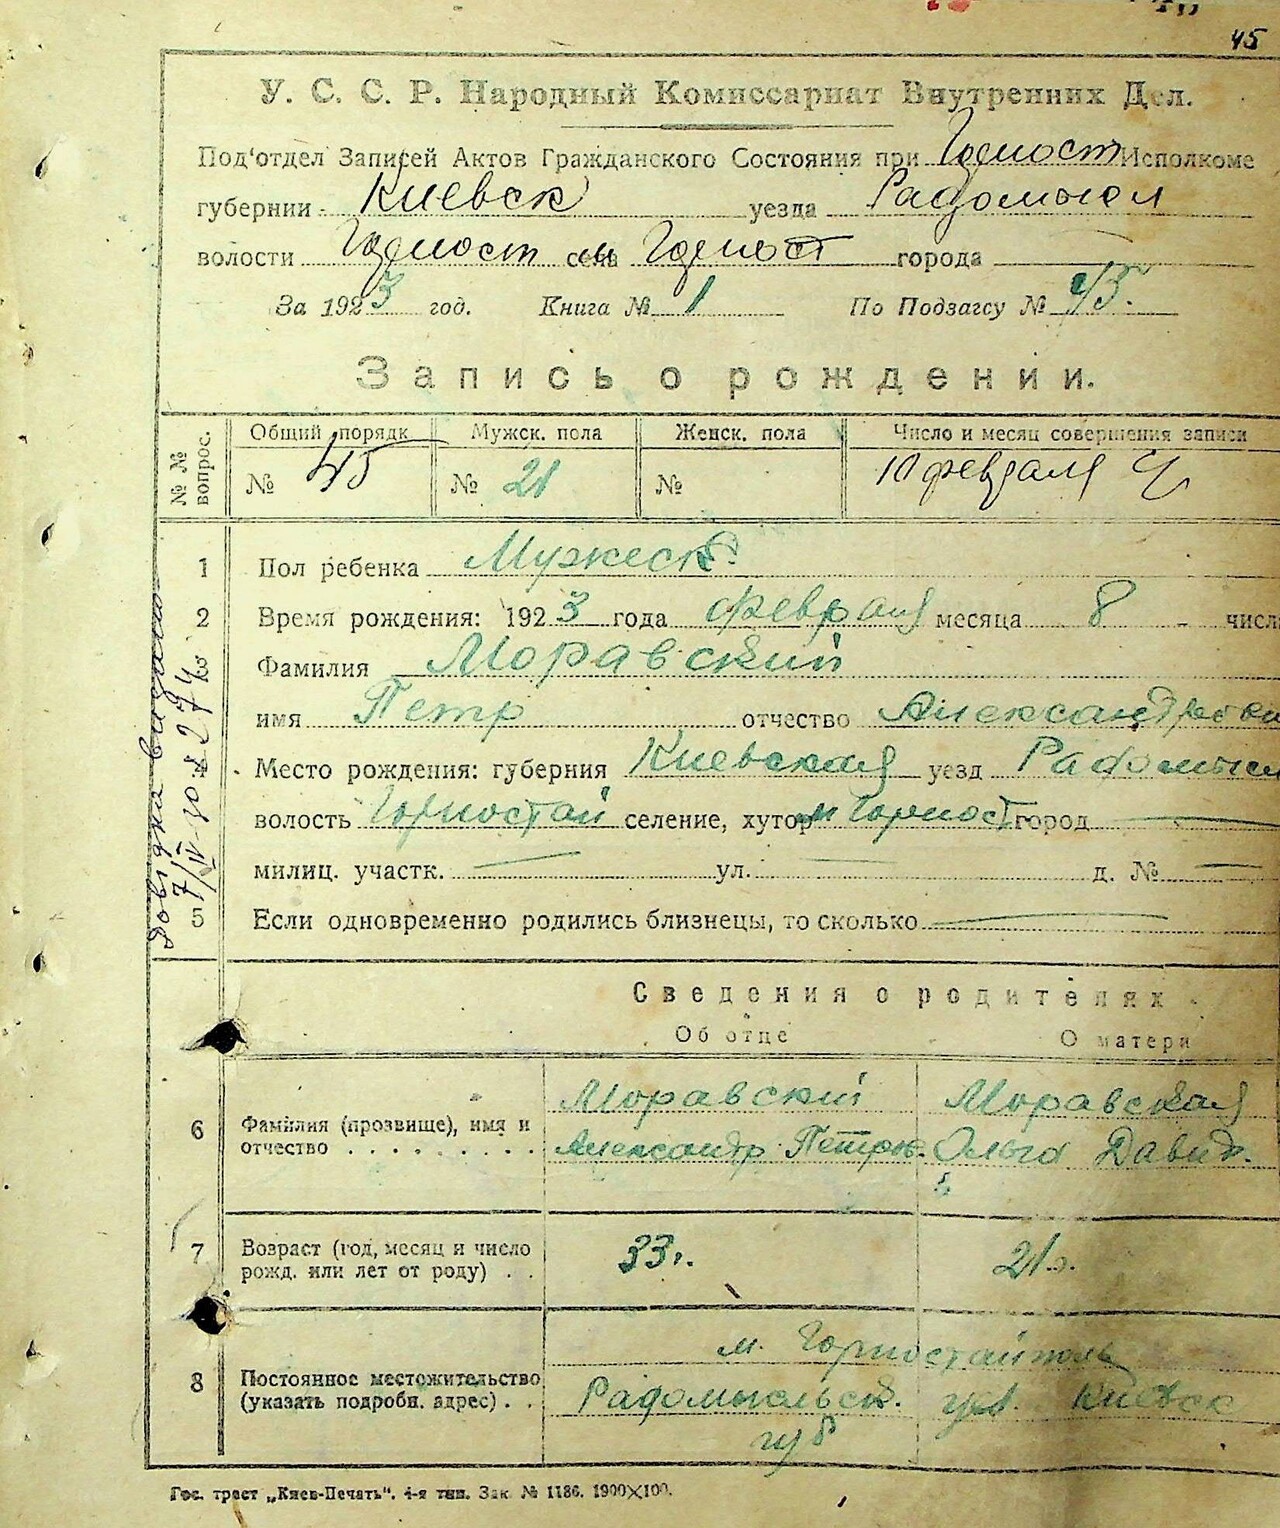 45
У. С. С. Р. Народный Комиссариат Внутренних Дел.
Под'отдел Записей Актов Гражданского Состояния при Исполкоме
губернии Киевск уезда Радомысл
волости села города
За 1923 год. Книга № 1 По Подзагсу № 45.
Запись о рождении.
№ № вопрос.
Общий порядк Мужск. пола Женск. пола Число и месяц совершения записи
№ 45 № 21 № 10 февраля
1 Пол ребенка Мужеск.
2 Время рождения: 1923 года февраля месяца 8 - числ
Фамилия Моравский
имя Петр отчество Александров
Место рождения: губерния Киевская уезд Радомысл
волость Горностай селение, хутор м Горност город
милиц. участк. ул. д. №
5 Если одновременно родились близнецы, то сколько
Довідка видана
7/IV-30 № 274
Сведения о родителях
Об отце О матери
6 Фамилия (прозвище), имя и отчество Моравский Моравская
Александр Петров. Ольга Давид.
7 Возраст (год, месяц и число рожд. или лет от роду) 33 г. 21 г.
8 Постоянное местожительство (указать подробн. адрес) м. Горностайполь
Радомысльск. Киевск
губ
Гос. трест „Киев-Печать". 4-я тип. Зак. № 1186. 1900×100.